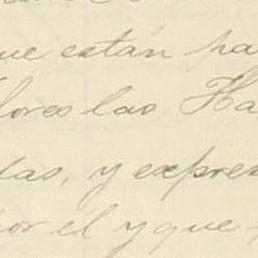 que están ha
lores las Ha
das, y expres
por él y que